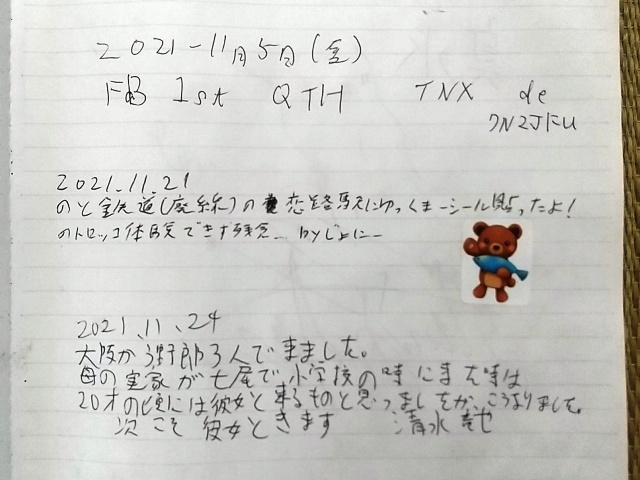 2021-11月5日(金)
FB 1st QTH TNX de
7N2JFU
2021.11.21
のと鉄道(廃線)の恋路駅にゆっくまーシール貼ったよ!
のトロッコ体験できず残念… byじょにー
2021.11.24
大阪から野郎3人できました。
母の実家が七尾で小学校の時にきた時は
20才の頃には彼女と来るものと思っていましたが、こうなりました。
次こそ彼女ときます 清水